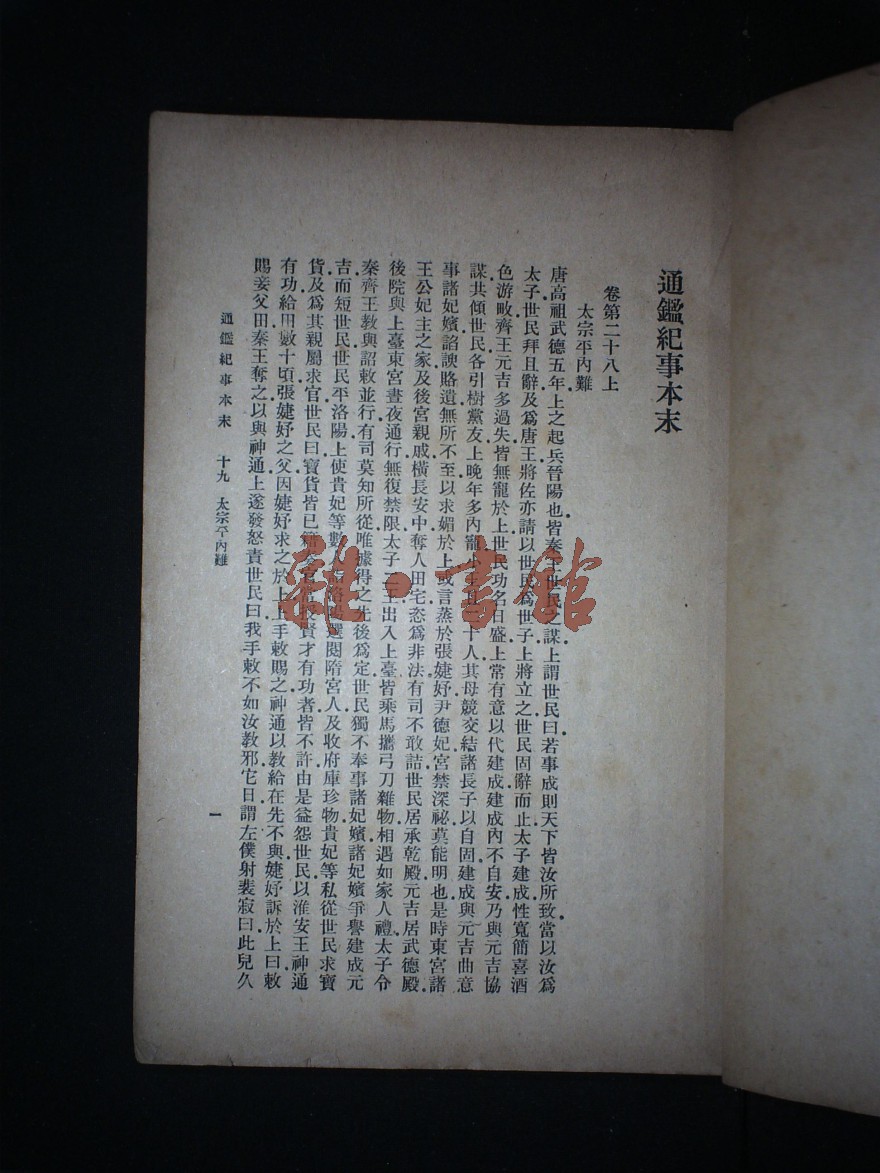 通鑑紀事本末
卷第二十八上
太宗平內難
唐高祖武德五年上之起兵晉陽也皆秦王世民之謀上謂世民曰若事成則天下皆汝所致當以汝爲
太子世民拜且辭及爲唐王將佐亦請以世民爲世子上將立之世民固辭而止太子建成性寬簡喜酒
色游畋齊王元吉多過失皆無寵於上世民功名日盛上常有意以代建成建成內不自安乃與元吉協
謀共傾世民各引樹黨友上晚年多內寵小王且二十人其母競交結諸長子以自固建成與元吉曲意
事諸妃嬪諂諛賂遺無所不至以求媚於上或言蒸於張婕妤尹德妃宮禁深祕莫能明也是時東宮諸
王公妃主之家及後宮親戚橫長安中奪人田宅恣爲非法有司不敢詰世民居承乾殿元吉居武德殿
後院與上臺東宮晝夜通行無復禁限太子二王出入上臺皆乘馬攜弓刀雜物相遇如家人禮太子令
秦齊王教與詔敕並行有司莫知所從唯據得之先後爲定世民獨不奉事諸妃嬪諸妃嬪爭譽建成元
吉而短世民世民平洛陽上使貴妃等數人洛陽選閱隋宮人及收府庫珍物貴妃等私從世民求寶
貨及爲其親屬求官世民曰寶貨皆已籍奏官當授賢才有功者皆不許由是益怨世民以淮安王神通
有功給田數十頃張婕妤之父因婕妤求之於上上手敕賜之神通以教給在先不與婕妤訴於上曰敕
賜妾父田秦王奪之以與神通上遂發怒責世民曰我手敕不如汝教邪它日謂左僕射裴寂曰此兒久
通鑑紀事本末 十九 太宗平內難
一
雜·書館